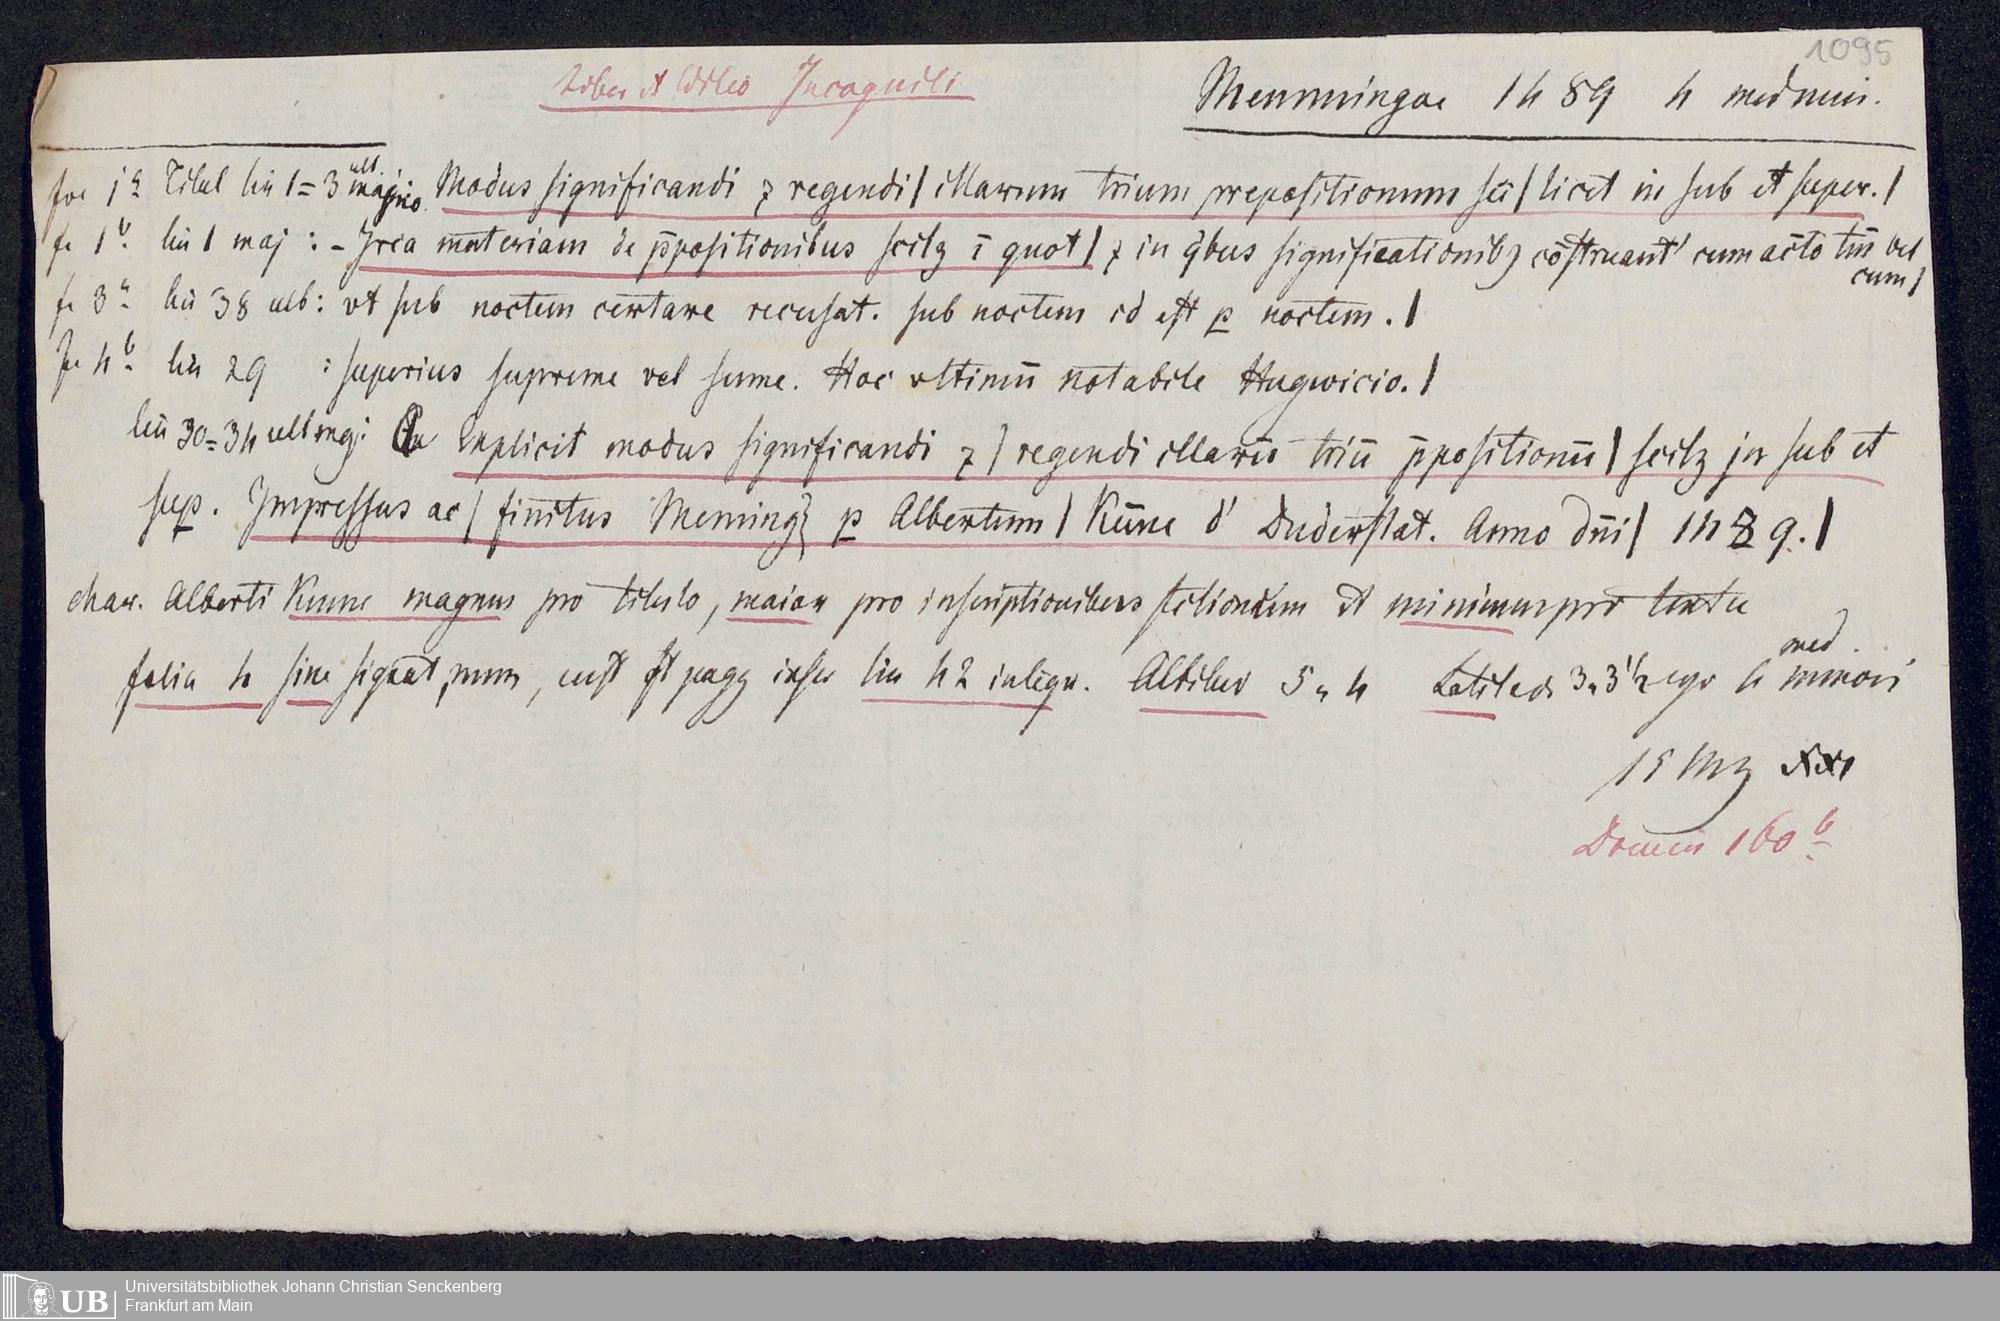 1095
Liber et Editio Incogniti
Memmingae 1489 4 med min.
foe ja Titul lin 1=3 ult. majno. Modus significandi ⁊ regendi | illarum trium prepositionum scꝫ | licet in sub et super. |
fe 1b. lin 1 maj: - Jrca materiam de p̄positionibus scilꝫ ī quot | ⁊ in q̇bus significationibꝫ cōstruant' cum actō tm̄ vel
cum |
fe 3a lin 38 ulb: vt sub noctem certare recusat. sub noctem id est p noctem. |
fe 4b. lin 29 : superius supreme vel sume. Hoc vltimū notabile Hugwicio. |
lin 30=34 ult maj: Explicit modus significandi ⁊ | regendi illarū triū p̄positionū | scilꝫ jn sub et
sup. Jmpressus ac | finitus Memingꝫ p Albertum | Kūne d' Duderstat. Anno dn̄i | 1489. |
char. Alberti Kunne magnus pro titulo, maior pro inscriptionibus et minimus pro textu
folia 4 sine signat, num, cust et pagg lin 42 integr. Altitud 5 " 4 Latitud. 3 " 3 1/2 4 med. minori
15 Mz XXI
160b
Universitätsbibliothek Johann Christian Senckenberg
Frankfurt am Main
UB